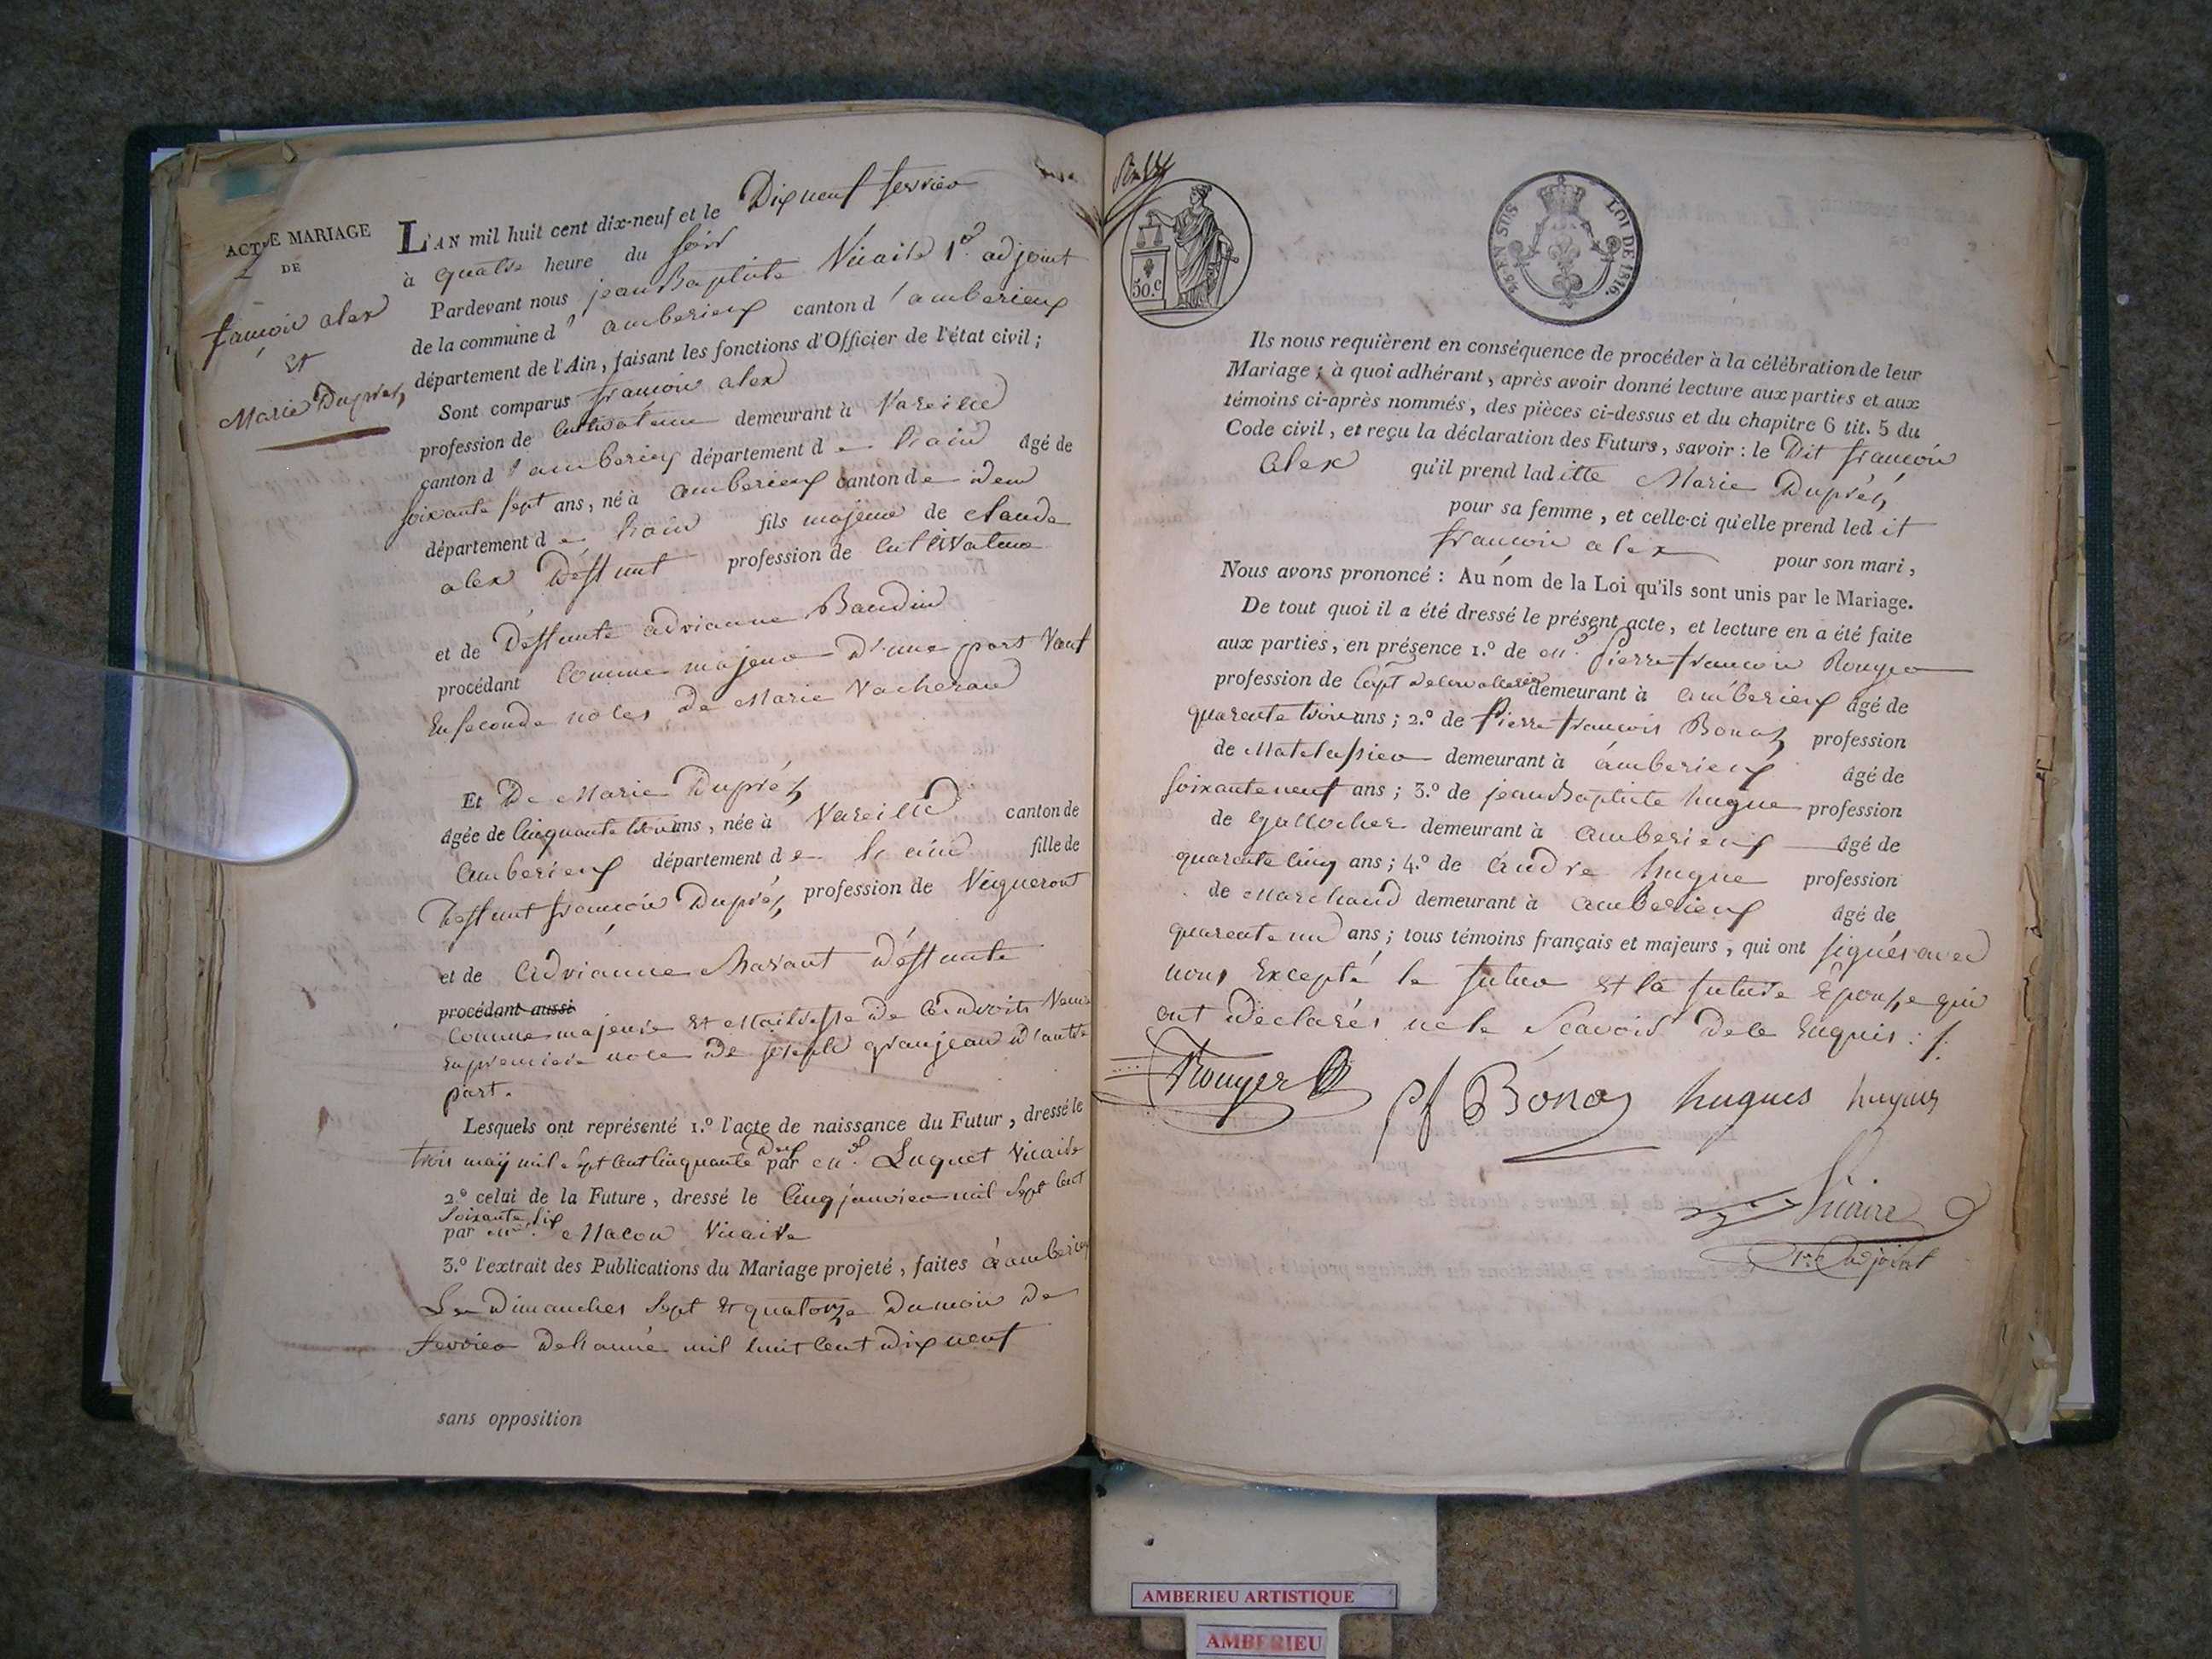 ACTE DE MARIAGE
DE
françois alex
et
Marie Duprez
L'AN mil huit cent dix-neuf et le Dixneuf fevrier
à quatre heure du soir
Pardevant nous jean Baptiste Vicaire 1er adjoint
de la commune d'amberieux canton d'amberieux
département de l'Ain, faisant les fonctions d'Officier de l'état civil;
Sont comparus françois alex
profession de Cultivateur demeurant à Vareille
canton d'amberieux département de lain âgé de
soixante sept ans, né à amberieux canton de idem
département de lain fils majeur de claude
alex Deffunt profession de Cultivateur
et de Deffunte adrianne Baudin
procédant Comme majeur D'une part Veuf
En seconde noces de Marie Vacheran
Et De Marie Duprez
âgée de Cinquante trois ans, née à Vareille canton de
Amberieux département de lain fille de
Deffunt françois Duprez profession de Vigneront
et de Adrianne Deffunte
procédant aussi
Comme majeure et Maitresse de Ces droits Veuve
En premiere noce De joseph granjean D'autre
part.
Lesquels ont représenté 1.º l'acte de naissance du Futur, dressé le
trois may mil sept Cent Cinquante Deux par mr. Luquet Vicaire
2.º celui de la Future, dressé le Cinq janvier mil Sept Cent
Soixante Six
par mr. Macon Vicaire
3.º l'extrait des Publications du Mariage projeté, faites à amberieux
Les Dimanches Sept et quatorze Du mois De
fevrier De lanné mil huit Cent Dix neuf
sans opposition
50.C
25 EN SUS LOI DE 1816.
Ils nous requièrent en conséquence de procéder à la célébration de leur
Mariage; à quoi adhérant, après avoir donné lecture aux parties et aux
témoins ci-après nommés, des pièces ci-dessus et du chapitre 6 tit. 5 du
Code civil, et reçu la déclaration des Futurs, savoir: le Dit françois
Alex qu'il prend laditte Marie Duprez
pour sa femme, et celle-ci qu'elle prend ledit
françois alex pour son mari,
Nous avons prononcé: Au nom de la Loi qu'ils sont unis par le Mariage.
De tout quoi il a été dressé le présent acte, et lecture en a été faite
aux parties, en présence 1.º de mr. Pierre françois Rouyer
profession de Capt de Cavallerie demeurant à amberieux âgé de
quarente trois ans; 2.º de Pierre françois Bonaz profession
de Matelassier demeurant à amberieux âgé de
soixante neuf ans; 3.º de jean Baptiste hugue profession
de Gallocher demeurant à amberieux âgé de
quarente Cinq ans; 4.º de André hugue profession
de Marchand demeurant à amberieux âgé de
quarente un ans; tous témoins français et majeurs, qui ont signés avec
nous Excepté le futur et la future Epouse qui
ont Declarés ne le Scavoir De le Enquis ./.
Rouyer pf Bonaz hugues hugues
Vicaire
1er Adjoint
AMBERIEU ARTISTIQUE
AMBERIEU